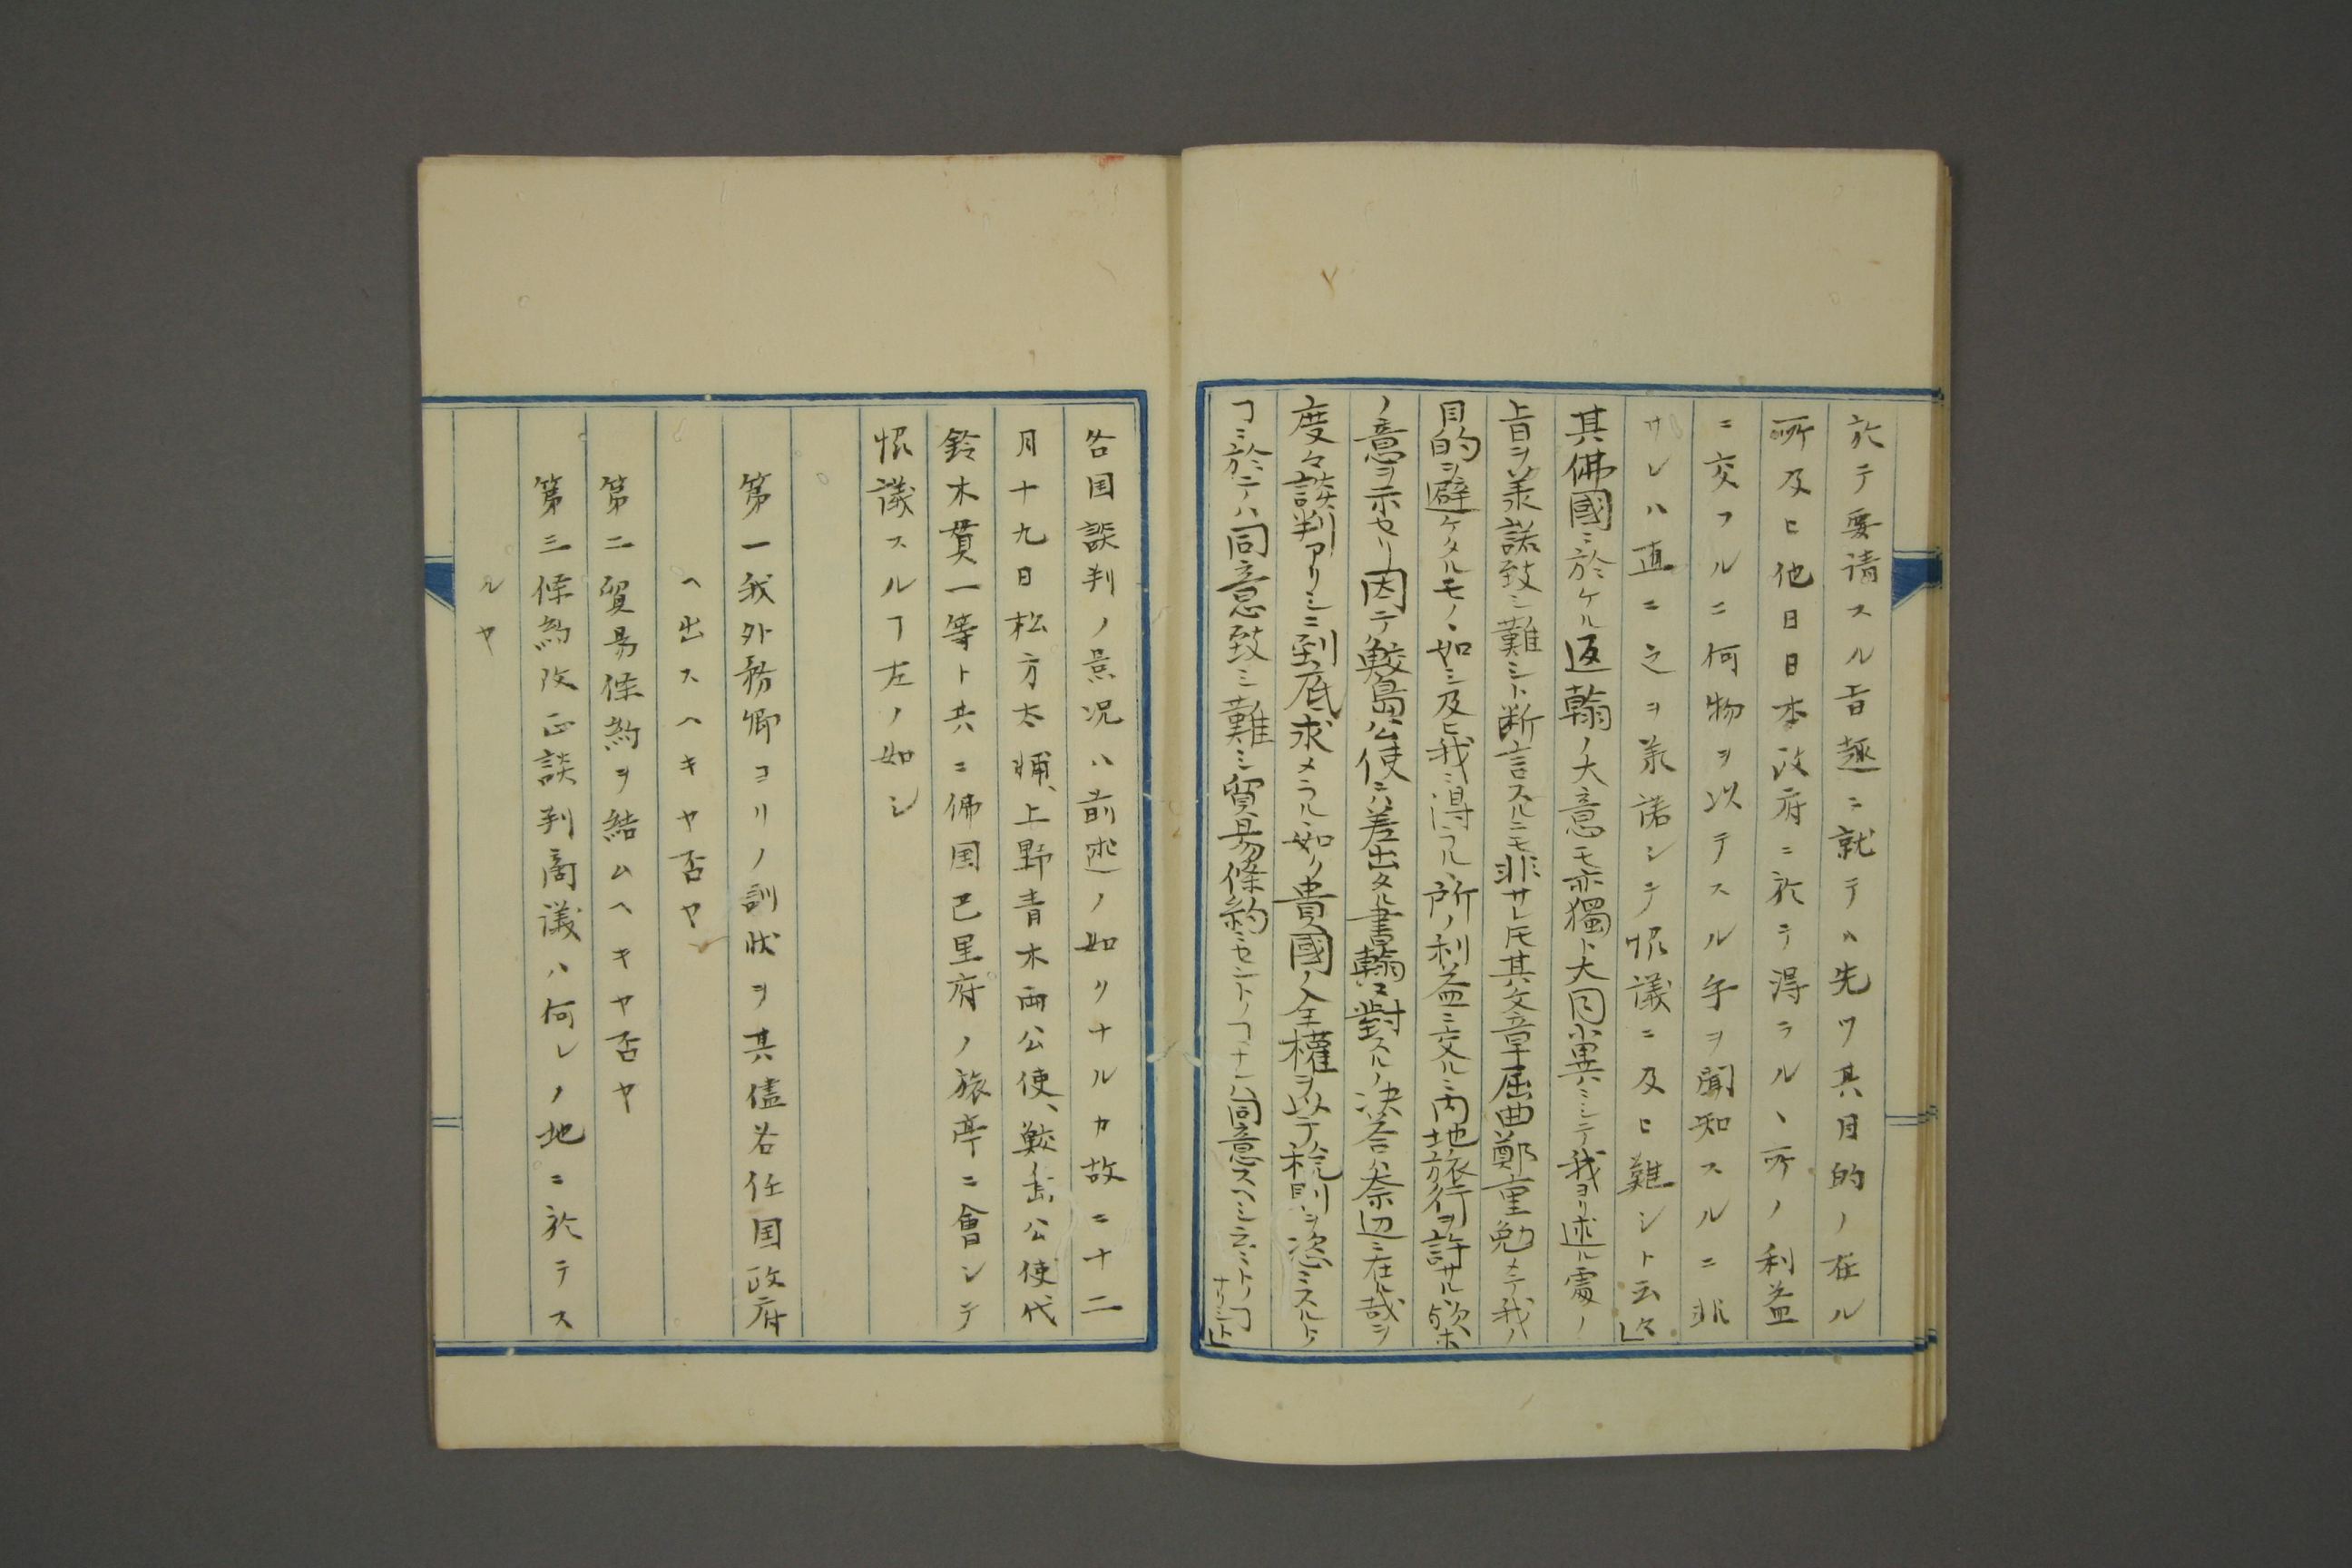 於テ要請スル旨趣ニ就テハ先ツ其目的ノ在ル
所及ヒ他日日本政府ニ於テ得ラル丶所ノ利益
ニ交フルニ何物ヲ以テスル乎ヲ聞知スルニ非
サレハ直ニ之ヲ承諾シテ協議ニ及ヒ難シト云々」
其佛國ニ於ケル返翰ノ大意モ亦獨ト大同小異ニシテ我ヨリ述ル處ノ
旨ヲ承諾致シ難シト断言スルニモ非サレ𪜈其文章屈曲鄭重勉メテ我ハ
目的ヲ避ケタルモノ丶如シ及ヒ我ニ得ラル丶所ノ利益ニ交ルニ内地旅行ヲ許サル欤ホ
ノ意ヲ示セリ因テ鮫島公使ニハ差出タル書翰ニ對スルノ决答ハ奈辺ニ在ル哉ヲ
度々談判アリシニ到底求メラル丶如ク貴國ノ全權ヲ以テ税則ヲ恣ニスルトノ
ヿニ於テハ同意致シ難シ貿易條約ニセントノヿナレハ同意スヘシ云々トノヿナリシト」
各国談判ノ景况ハ前述ノ如クナルカ故ニ十二
月十九日松方太輔、上野青木両公使、鮫島公使代
鈴木貫一等ト共ニ佛国巴里府ノ旅亭ニ會シテ
協議スルヿ左ノ如シ
第一我外務卿ヨリノ訓状ヲ其儘各任国政府
ヘ出スヘキヤ否ヤ
第二貿易條約ヲ結ムヘキヤ否ヤ
第三條約改正談判商議ハ何レノ地ニ於テス
ルヤ